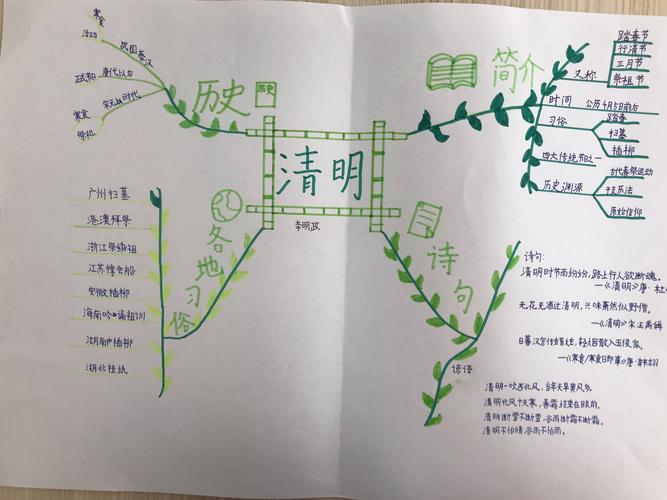 清明
李明政
历史
历史
寒食
活动
战国秦汉
唐代以后
正式节日
宋元时代
寒食
祭祀
简介
又称
踏春节
行清节
三月节
祭祖节
时间
公历4月5日前后
习俗
踏春
扫墓
插柳
四大传统节日之一
历史渊源
古代春祭运动
干支历法
原始信仰
各地习俗
广州扫墓
港澳拜祭
浙江祭蚕祖
江苏撑会船
安徽插柳
海南吟诵祖训
湖南插柳
湖北挂纸
诗句
诗句:
清明时节雨纷纷,路上行人欲断魂。
—《清明》唐·杜
无花无酒过清明,兴味萧然似野僧。
—《清明》宋·王禹偁
日暮汉宫传蜡烛,轻烟散入五侯家。
—《寒食/寒食日即事》唐·韩翃
谚语:
清明一吹西北风,当年天旱黄风多。
清明北风十天寒,春霜结束在眼前。
清明断雪不断雪,谷雨断霜不断霜。
清明不怕晴,谷雨不怕雨。